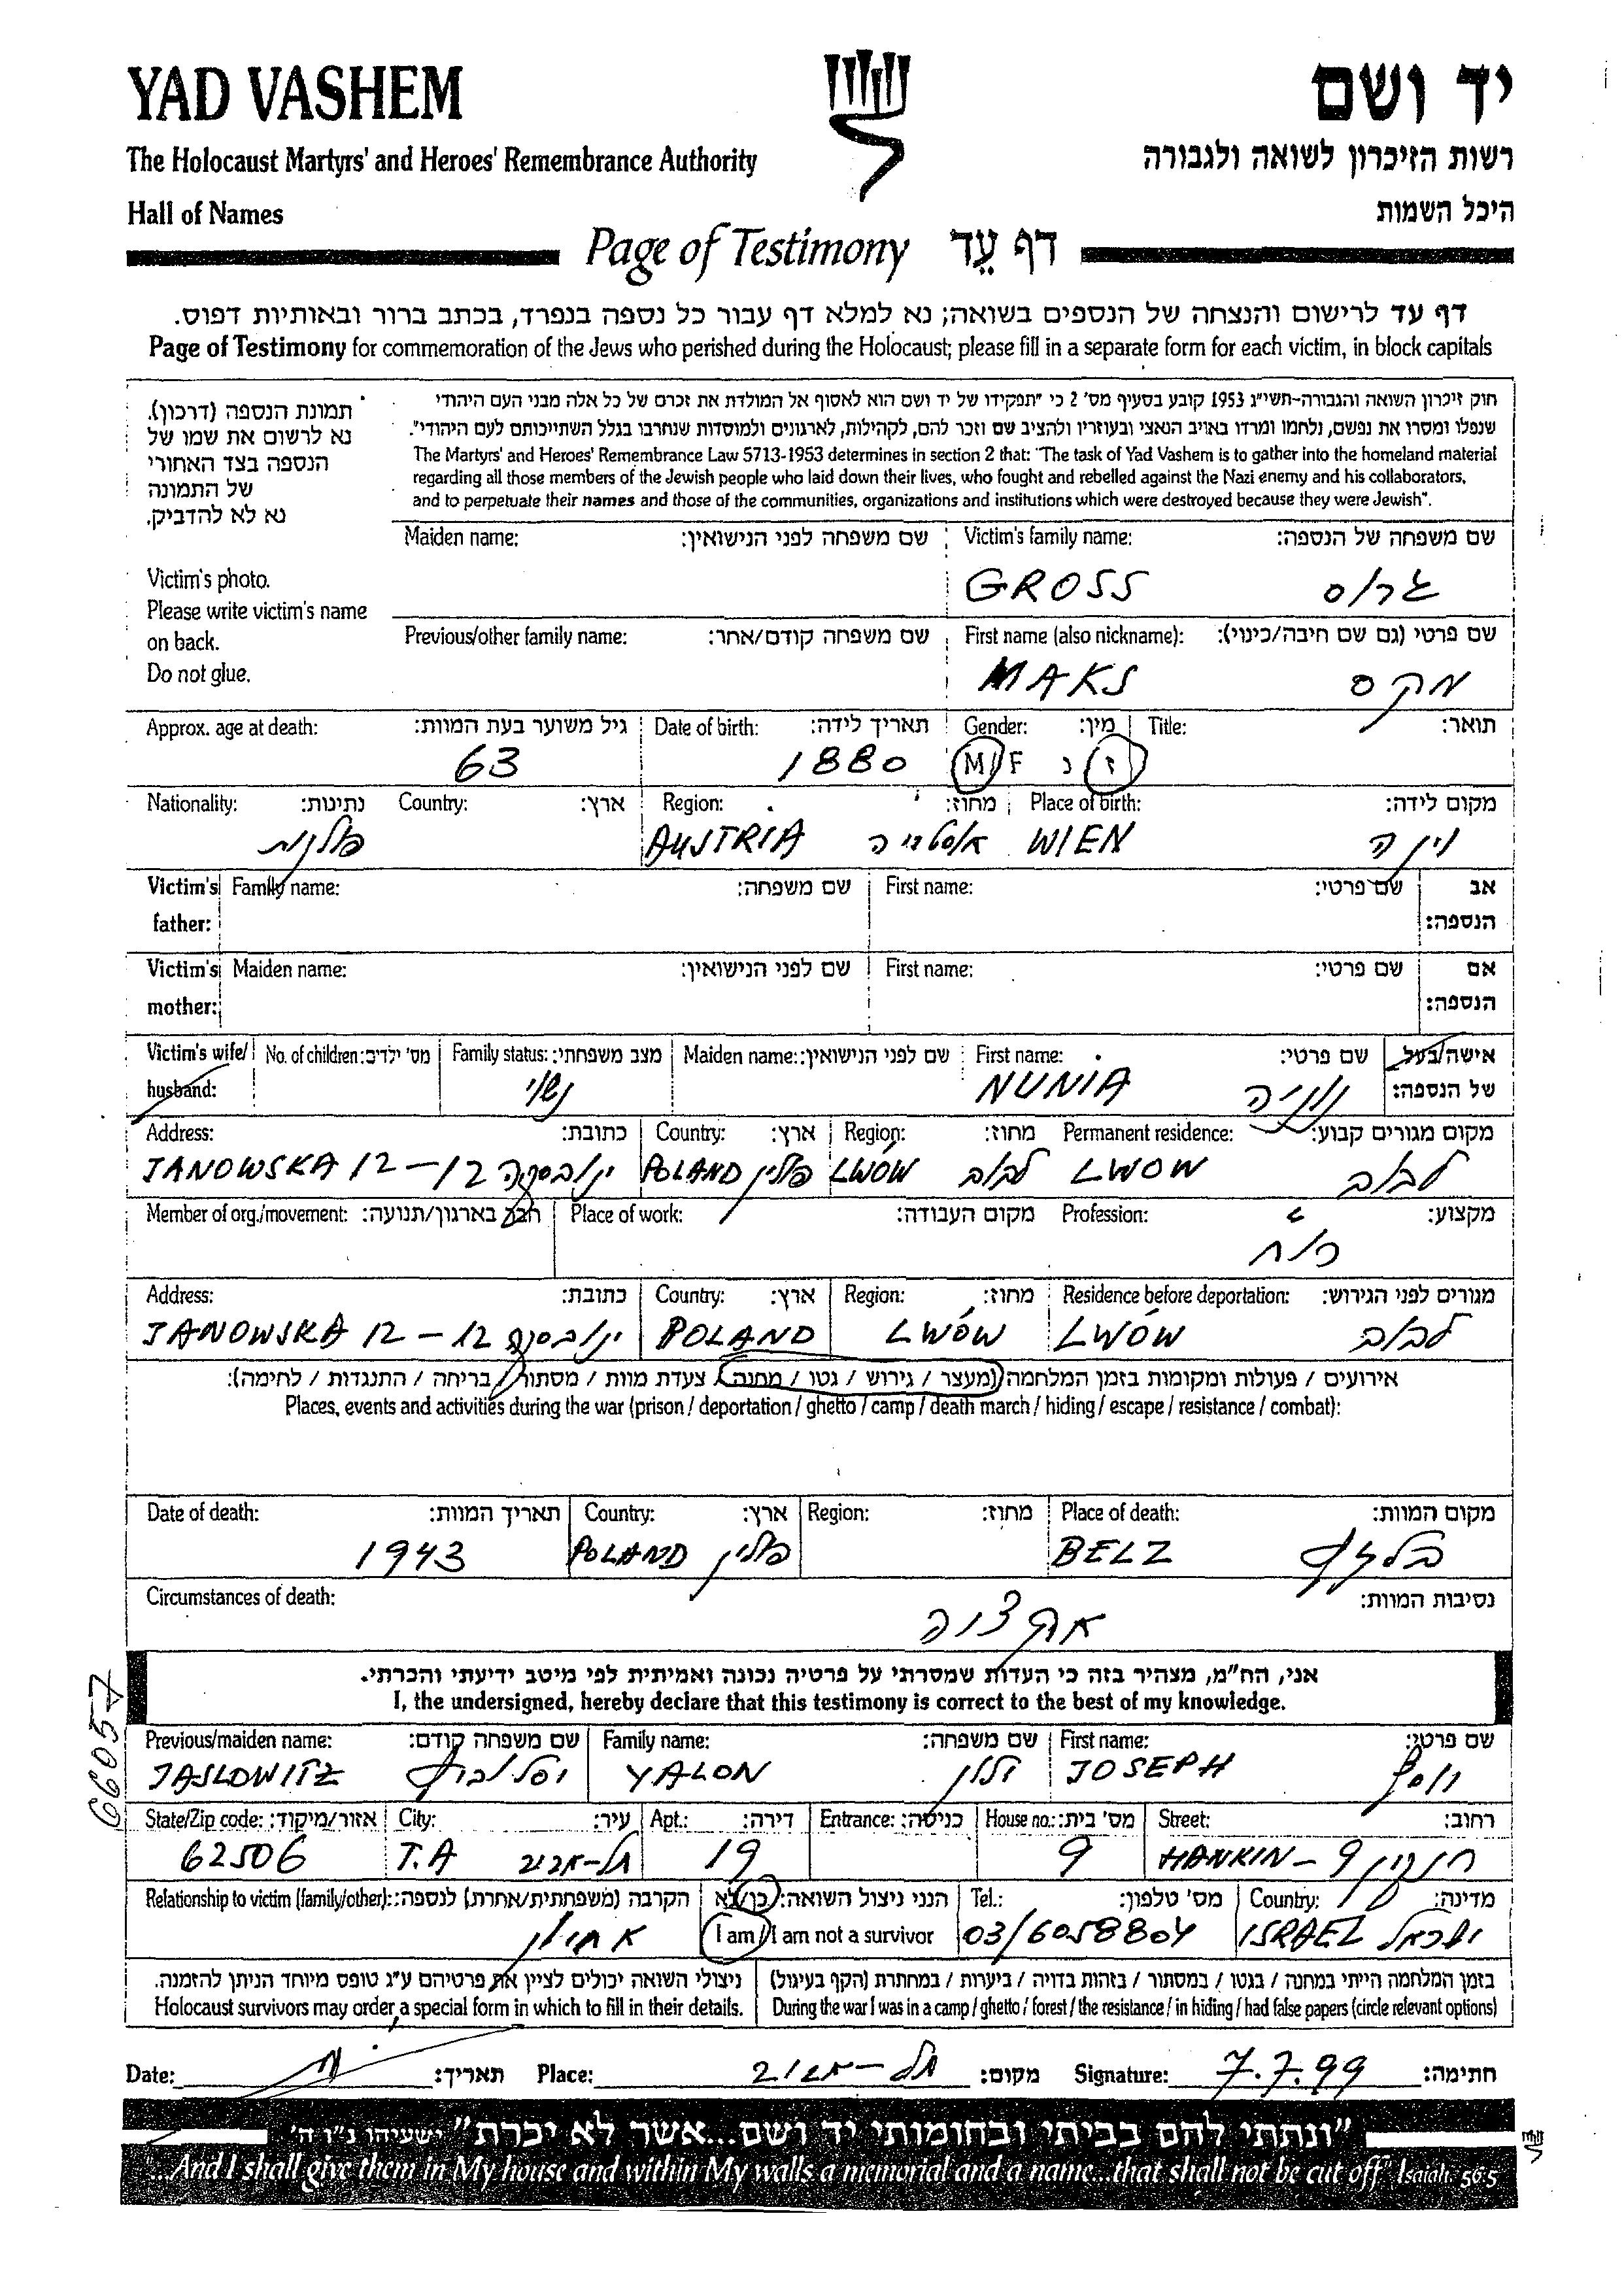 YAD VASHEM
יד ושם
The Holocaust Martyrs' and Heroes' Remembrance Authority
רשות הזיכרון לשואה ולגבורה
Hall of Names
היכל השמות
Page of Testimony דף עֵד
דף עד לרישום והנצחה של הנספים בשואה; נא למלא דף עבור כל נספה בנפרד, בכתב ברור ובאותיות דפוס.
Page of Testimony for commemoration of the Jews who perished during the Holocaust; please fill in a separate form for each victim, in block capitals
תמונת הנספה (דרכון).
נא לרשום את שמו של
הנספה בצד האחורי
של התמונה
נא לא להדביק.
Victim's photo.
Please write victim's name
on back.
Do not glue.
חוק זיכרון השואה והגבורה-תשי"ג 1953 קובע בסעיף מס' 2 כי "תפקידו של יד ושם הוא לאסוף אל המולדת את זכרם של כל אלה מבני העם היהודי
שנפלו ומסרו את נפשם, נלחמו ומרדו באויב הנאצי ובעוזריו ולהציב שם וזכר להם, לקהילות, לארגונים ולמוסדות שנחרבו בגלל השתייכותם לעם היהודי".
The Martyrs' and Heroes' Remembrance Law 5713-1953 determines in section 2 that: "The task of Yad Vashem is to gather into the homeland material
regarding all those members of the Jewish people who laid down their lives, who fought and rebelled against the Nazi enemy and his collaborators,
and to perpetuate their names and those of the communities, organizations and institutions which were destroyed because they were Jewish".
Maiden name: שם משפחה לפני הנישואין: Victim's family name: שם משפחה של הנספה:
GROSS גרוס
Previous/other family name: שם משפחה קודם/אחר: First name (also nickname): שם פרטי (גם שם חיבה/כינוי):
MAKS מקס
Approx. age at death: גיל משוער בעת המוות: Date of birth: תאריך לידה: Gender: מין: Title: תואר:
63 1880 M/F נ ז
Nationality: נתינות: Country: ארץ: Region: מחוז: Place of birth: מקום לידה:
פולנית AUSTRIA אוסטריה WIEN וינה
Victim's father: Family name: שם משפחה: First name: שם פרטי: אב הנספה:
Victim's mother: Maiden name: שם לפני הנישואין: First name: שם פרטי: אם הנספה:
Victim's wife/husband: No. of children: מס' ילדים: Family status: מצב משפחתי: Maiden name: שם לפני הנישואין: First name: שם פרטי: אישה/בעל של הנספה:
נשוי NUNIA נוניה
Address: כתובת: Country: ארץ: Region: מחוז: Permanent residence: מקום מגורים קבוע:
JANOWSKA 12 – 12 ינובסקה POLAND פולין LWÓW לבוב LWOW לבוב
Member of org./movement: חבר בארגון/תנועה: Place of work: מקום העבודה: Profession: מקצוע:
Address: כתובת: Country: ארץ: Region: מחוז: Residence before deportation: מגורים לפני הגירוש:
JANOWSKA 12 – 12 ינובסקה POLAND LWÓW LWÓW לבוב
אירועים / פעולות ומקומות בזמן המלחמה (מעצר / גירוש / גטו / מחנה / צעדת מוות / מסתור / בריחה / התנגדות / לחימה):
Places, events and activities during the war (prison / deportation / ghetto / camp / death march / hiding / escape / resistance / combat):
Date of death: תאריך המוות: Country: ארץ: Region: מחוז: Place of death: מקום המוות:
1943 POLAND פולין BELZ בלזץ
Circumstances of death: נסיבות המוות:
אקציה
אני, הח"מ, מצהיר בזה כי העדות שמסרתי על פרטיה נכונה ואמיתית לפי מיטב ידיעתי והכרתי.
I, the undersigned, hereby declare that this testimony is correct to the best of my knowledge.
66057
Previous/maiden name: שם משפחה קודם: Family name: שם משפחה: First name: שם פרטי:
JASLOWITZ יסלוביץ YALON ילון JOSEPH יוסף
State/Zip code: אזור/מיקוד: City: עיר: Apt.: דירה: Entrance: כניסה: House no.: מס' בית: Street: רחוב:
62506 T.A תל-אביב 19 9 HANKIN – 9 חנקין
Relationship to victim (family/other): הקרבה (משפחתית/אחרת) לנספה: הנני ניצול השואה: כן/לא Tel.: מס' טלפון: Country: מדינה:
אחיין I am / I am not a survivor 03/6058804 ISRAEL ישראל
ניצולי השואה יכולים לציין את פרטיהם ע"ג טופס מיוחד הניתן להזמנה. בזמן המלחמה הייתי במחנה / בגטו / במסתור / בזהות בדויה / ביערות / במחתרת (הקף בעיגול)
Holocaust survivors may order a special form in which to fill in their details. During the war I was in a camp / ghetto / forest / the resistance / in hiding / had false papers (circle relevant options)
Date: תאריך: Place: תל-אביב מקום: Signature: 7.7.99 חתימה:
"ונתתי להם בביתי ובחומותי יד ושם...אשר לא יכרת" ישעיהו נ"ו ה'
...And I shall give them in My house and within My walls a memorial and a name...that shall not be cut off" Isaiah 56:5